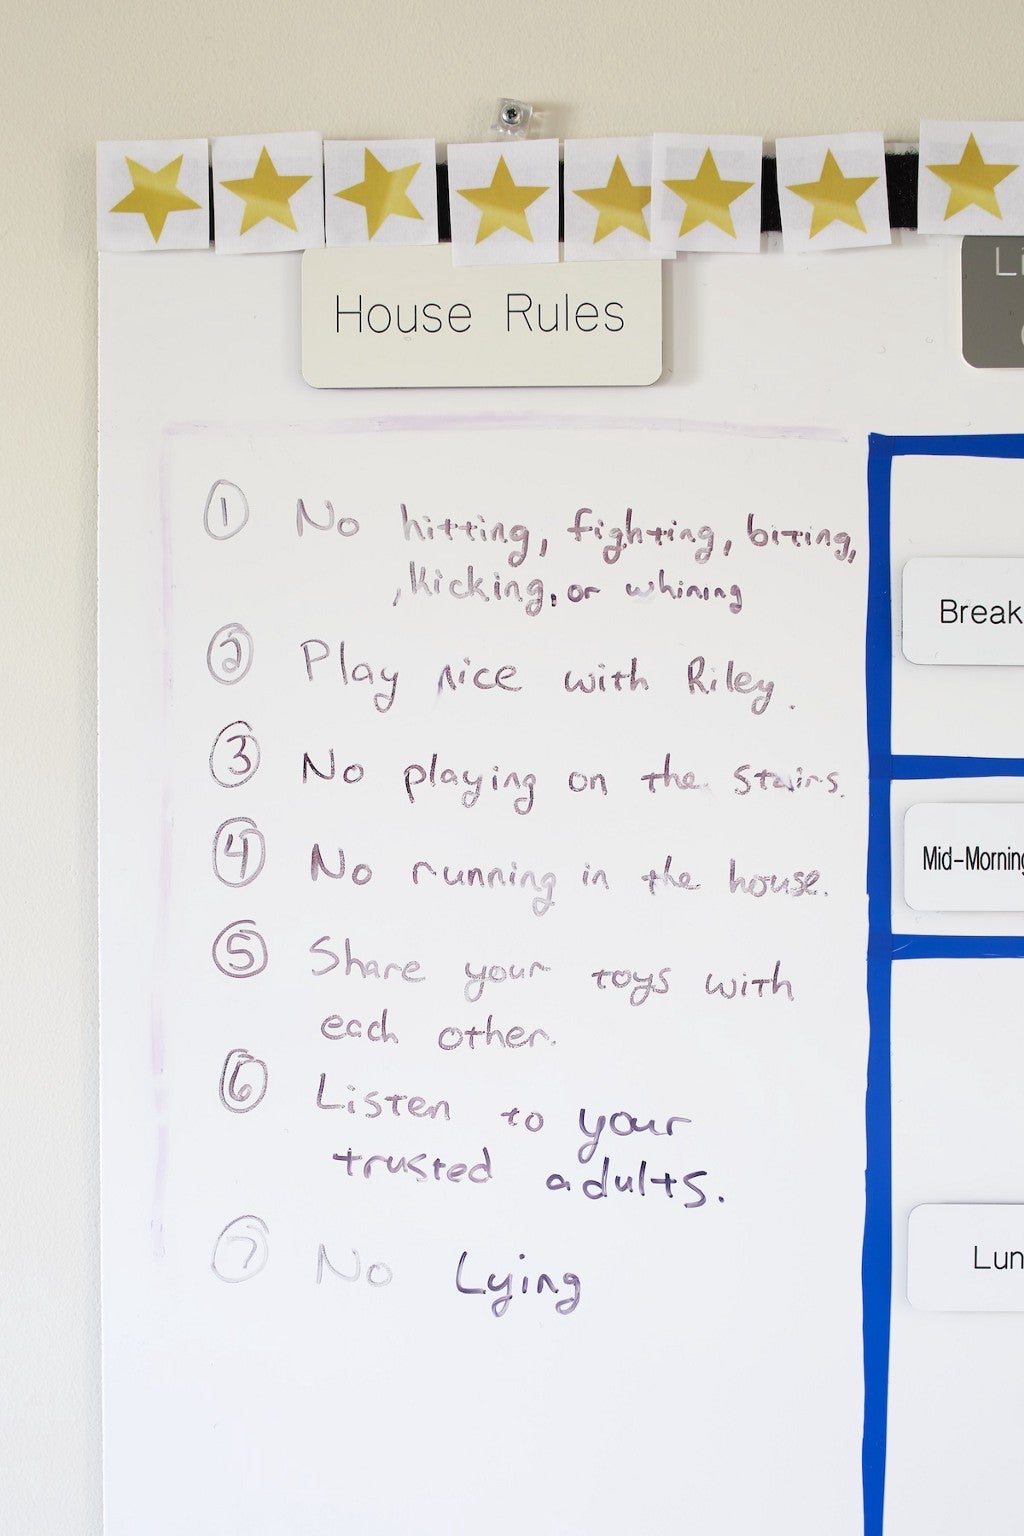 House Rules
① No hitting, fighting, biting,
,kicking, or whining
② Play nice with Riley.
③ No playing on the stairs.
④ No running in the house.
⑤ Share your toys with
each other.
⑥ Listen to your
trusted adults.
⑦ No Lying
Break
Mid-Morning
Lun